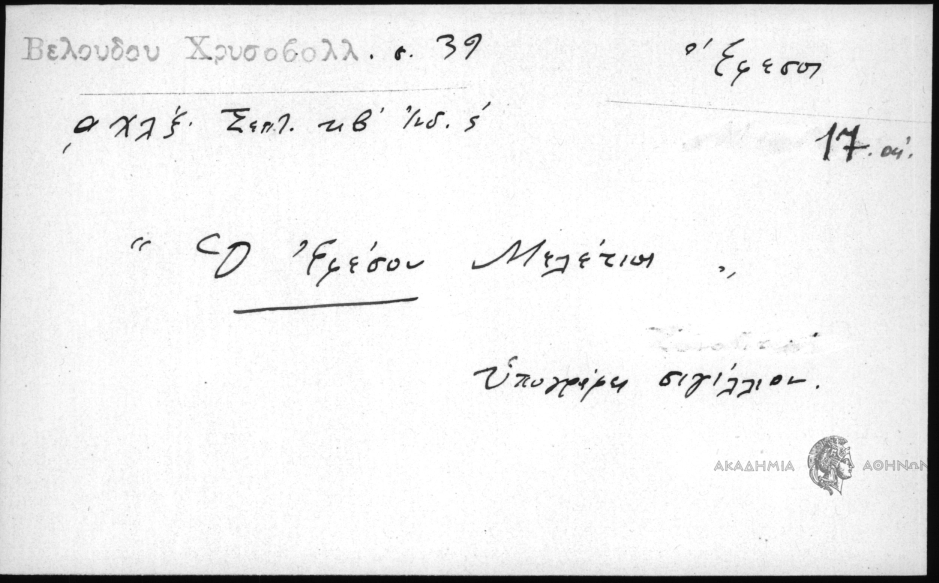 Βελουδου Χρυσοβολλ. σ. 39
Ἔφεσος
͵αχλξ΄ Σεπτ. κβ΄ Ἰνδ. ϛ΄
17. αἰ.
“ Ὁ Ἐφέσου Μελέτιος „
Ὑπογράφει σιγίλλιον.
ΑΚΑΔΗΜΙΑ ΑΘΗΝΩΝ